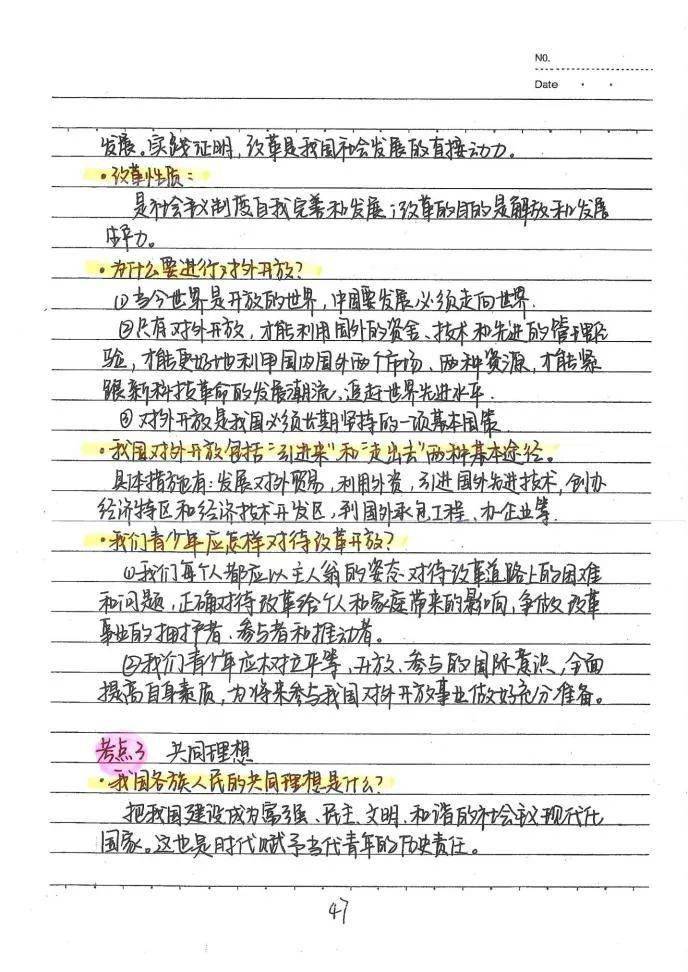 NO.
Date
发展。实践证明,改革是我国社会发展的直接动力。
·改革性质:
是社会主义制度自我完善和发展;改革的目的是解放和发展
生产力。
·为什么要进行对外开放?
①当今世界是开放的世界,中国要发展必须走向世界.
②只有对外开放,才能利用国外的资金、技术和先进的管理经
验,才能更好地利用国内国外两个市场、两种资源,才能紧
跟新科技革命的发展潮流、追赶世界先进水平.
③对外开放是我国必须长期坚持的一项基本国策.
·我国对外开放包括"引进来"和"走出去"两种基本途径。
具体措施有:发展对外贸易,利用外资,引进国外先进技术,创办
经济特区和经济技术开发区,到国外承包工程、办企业等.
·我们青少年应怎样对待改革开放?
①我们每个人都应以主人翁的姿态对待改革道路上的困难
和问题,正确对待改革给个人和家庭带来的影响,争做改革
事业的拥护者、参与者和推动者。
②我们青少年应树立平等、开放、参与的国际意识,全面
提高自身素质,为将来参与我国对外开放事业做好充分准备。
考点3 共同理想
·我国各族人民的共同理想是什么?
把我国建设成为富强、民主、文明、和谐的社会主义现代化
国家。这也是时代赋予当代青年的历史责任。
47